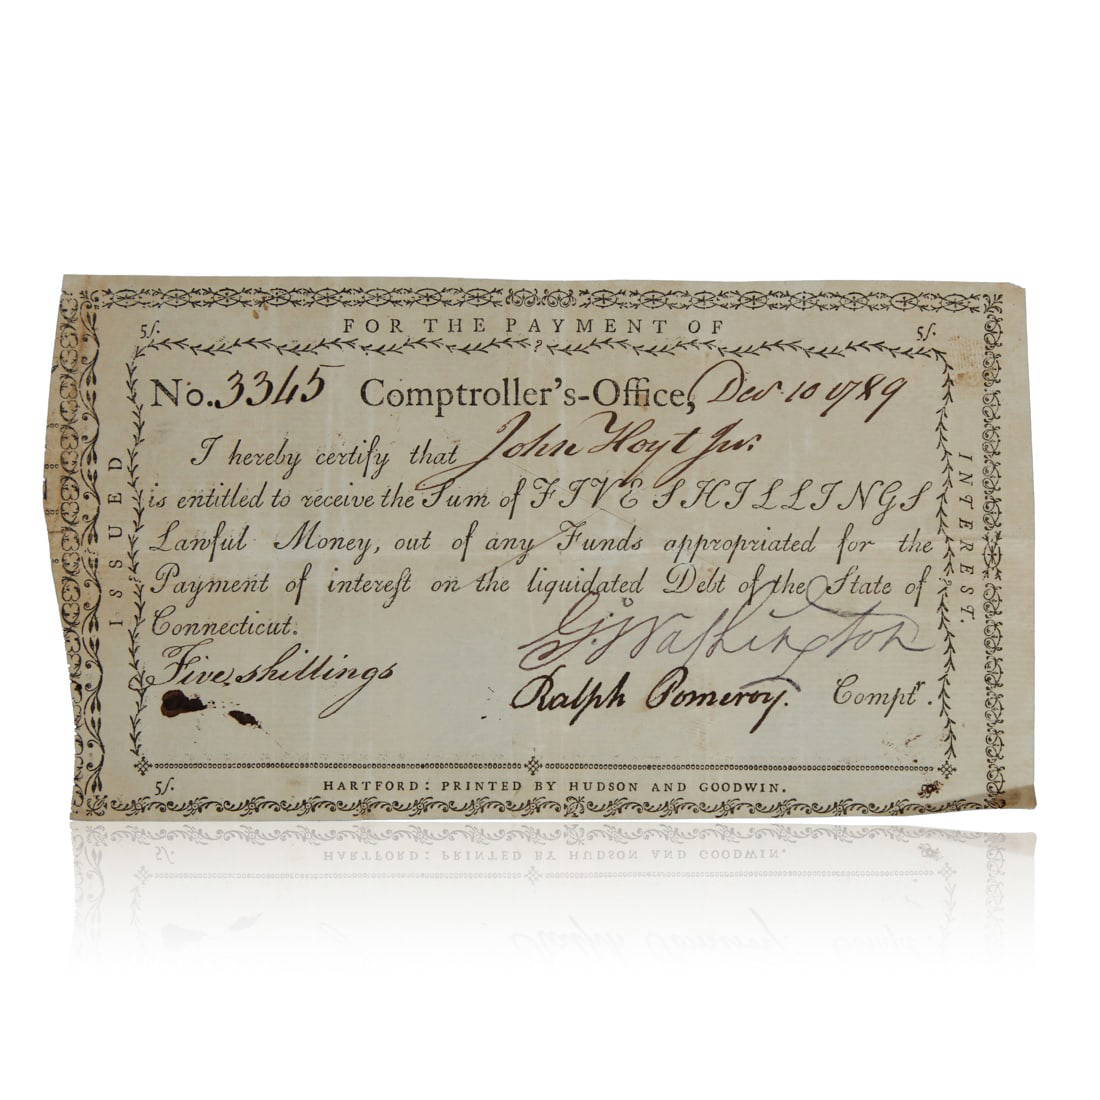 FOR THE PAYMENT OF
5/. 5/.
No. 3345 Comptroller's-Office, Dec 10 1789
I hereby certify that John Hoyt Jur.
is entitled to receive the Sum of FIVE SHILLINGS
Lawful Money, out of any Funds appropriated for the
Payment of intereſt on the liquidated Debt of the State of
Connecticut.
G. Washington
Five shillings
Ralph Pomeroy. Comptr.
5/.
HARTFORD: PRINTED BY HUDSON AND GOODWIN.
ISSUED
INTEREST.